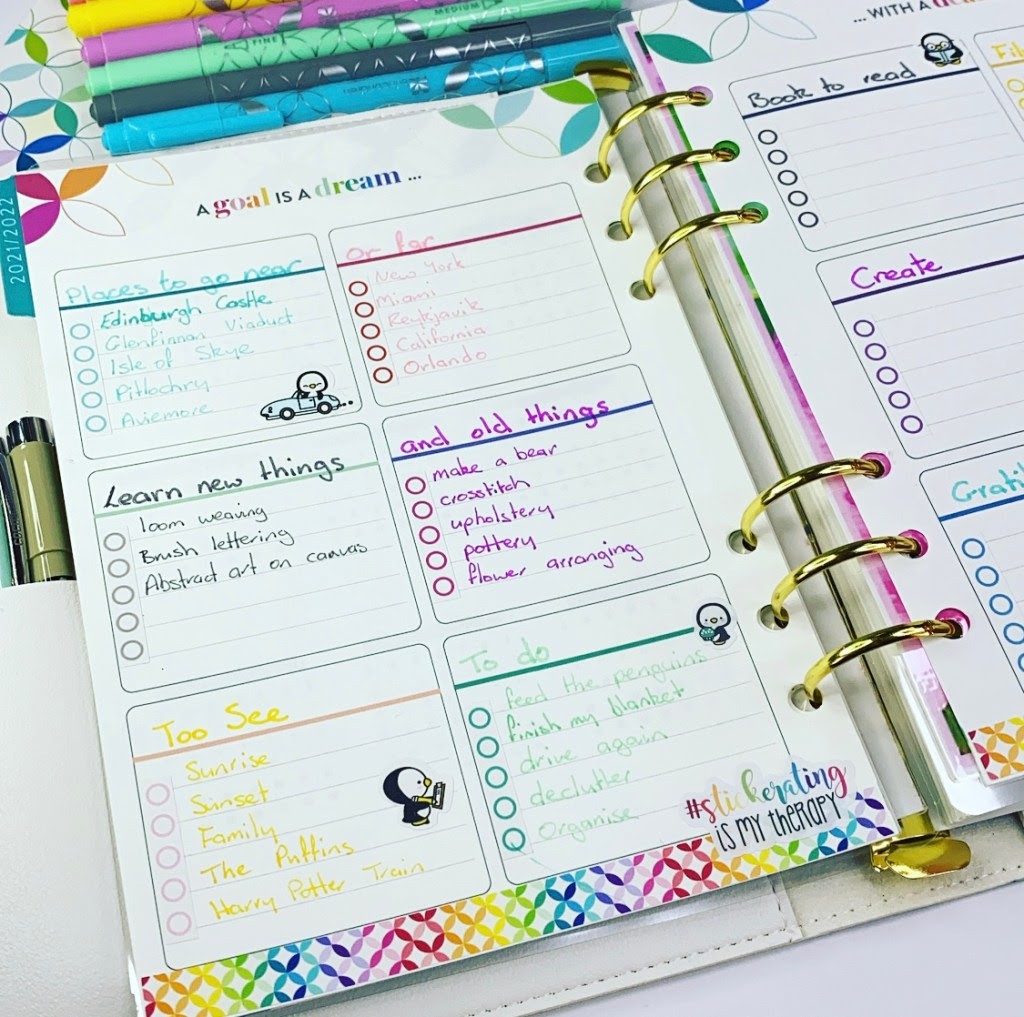 FINE
MEDIUM
2021/2022
A goal IS A dream ...
Places to go near
Edinburgh Castle
Glenfinnan Viaduct
Isle of Skye
Pitlochry
Aviemore
Or far
New York
Miami
Reykjavik
California
Orlando
Learn new things
loom weaving
Brush lettering
Abstract art on canvas
and old things
make a bear
crosstitch
upholstery
pottery
flower arranging
Too See
Sunrise
Sunset
Family
The Puffins
Harry Potter Train
To do
feed the penguins
finish my blanket
drive again
declutter
Organise
#stickerating
is my therapy
... WITH A
Book to read
Create